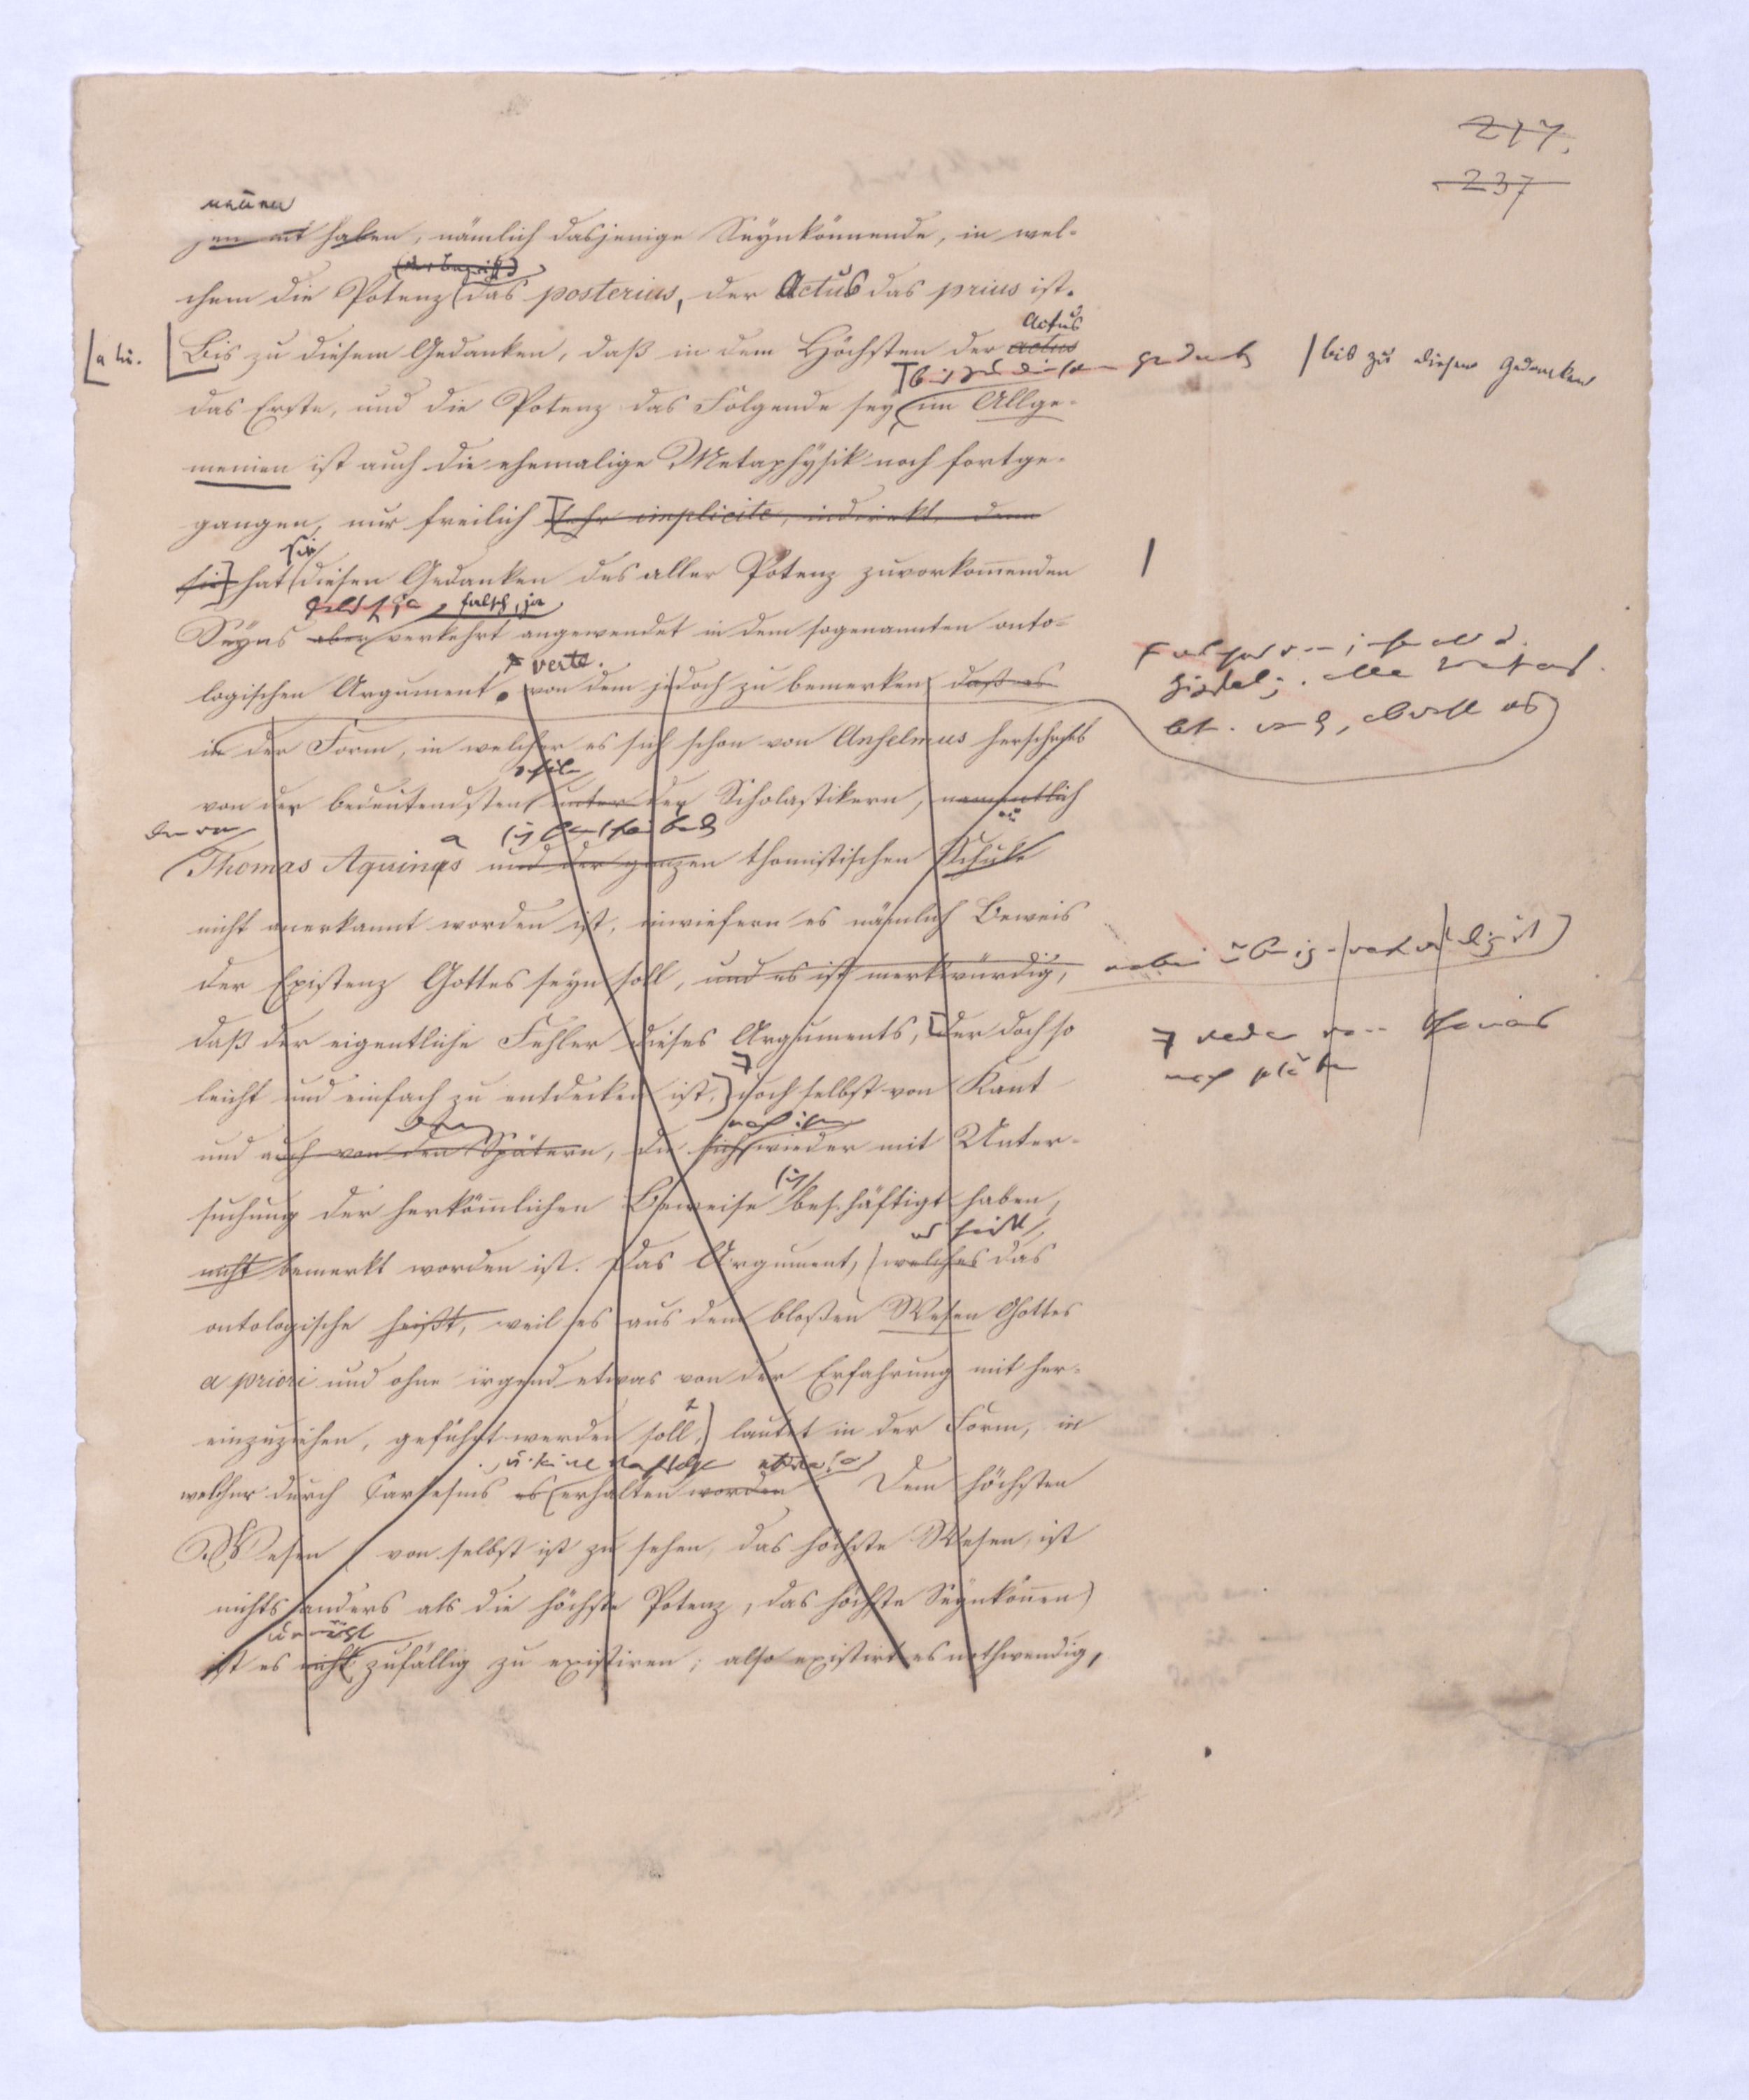 217.
237
nennen
haben, nämlich dasjenige Seynkönnende, in wel-
(der Begriff)
chem die Potenz das posterius, der Actus das prius ist.
Actus
Bis zu diesem Gedanken, daß in dem Höchsten der actus
bis zu diesem Gedanken
bis zu diesem Gedanken
das Erste, und die Potenz das Folgende sey, im Allge-
meinen ist auch die ehemalige Metaphysik noch fortge-
gangen, nur freilich sehr implicite, indirekt, denn
sie
sie hat diesen Gedanken des aller Potenz zuvorkommenden
falsch, ja
Seyns aber verkehrt angewendet in dem sogenannten onto-
verte.
logischen Argument, von dem jedoch zu bemerken, daß es
in der Form, in welcher es sich schon von Anselmus herschreibt
von der bedeutendsten unter den Scholastikern, namentlich
Thomas Aquinas und der ganzen thomistischen Schule
nicht anerkannt worden ist, inwiefern es nämlich Beweis
der Existenz Gottes seyn soll, und es ist merkwürdig,
daß der eigentliche Fehler dieses Arguments, der doch so
weder von Thomas
leicht und einfach zu entdecken ist, doch selbst von Kant
nach ihm
und auch von den Spätern, die sich wieder mit Unter-
suchung der herkömlichen Beweise beschäftigt haben,
nicht bemerkt worden ist. Das Argument, welches das
ontologische heißt, weil es aus dem bloßen Wesen Gottes
a priori und ohne irgend etwas von der Erfahrung mit her-
einzuziehen, geführt werden soll, lautet in der Form, in
welcher durch Cartesius es erhalten worden Dem höchsten
Wesen von selbst ist zu sehen, das höchste Wesen, ist
nichts anders als die höchste Potenz, das höchste Seynkönnen)
ist es nicht zufällig zu existiren; also existirt es nothwendig,